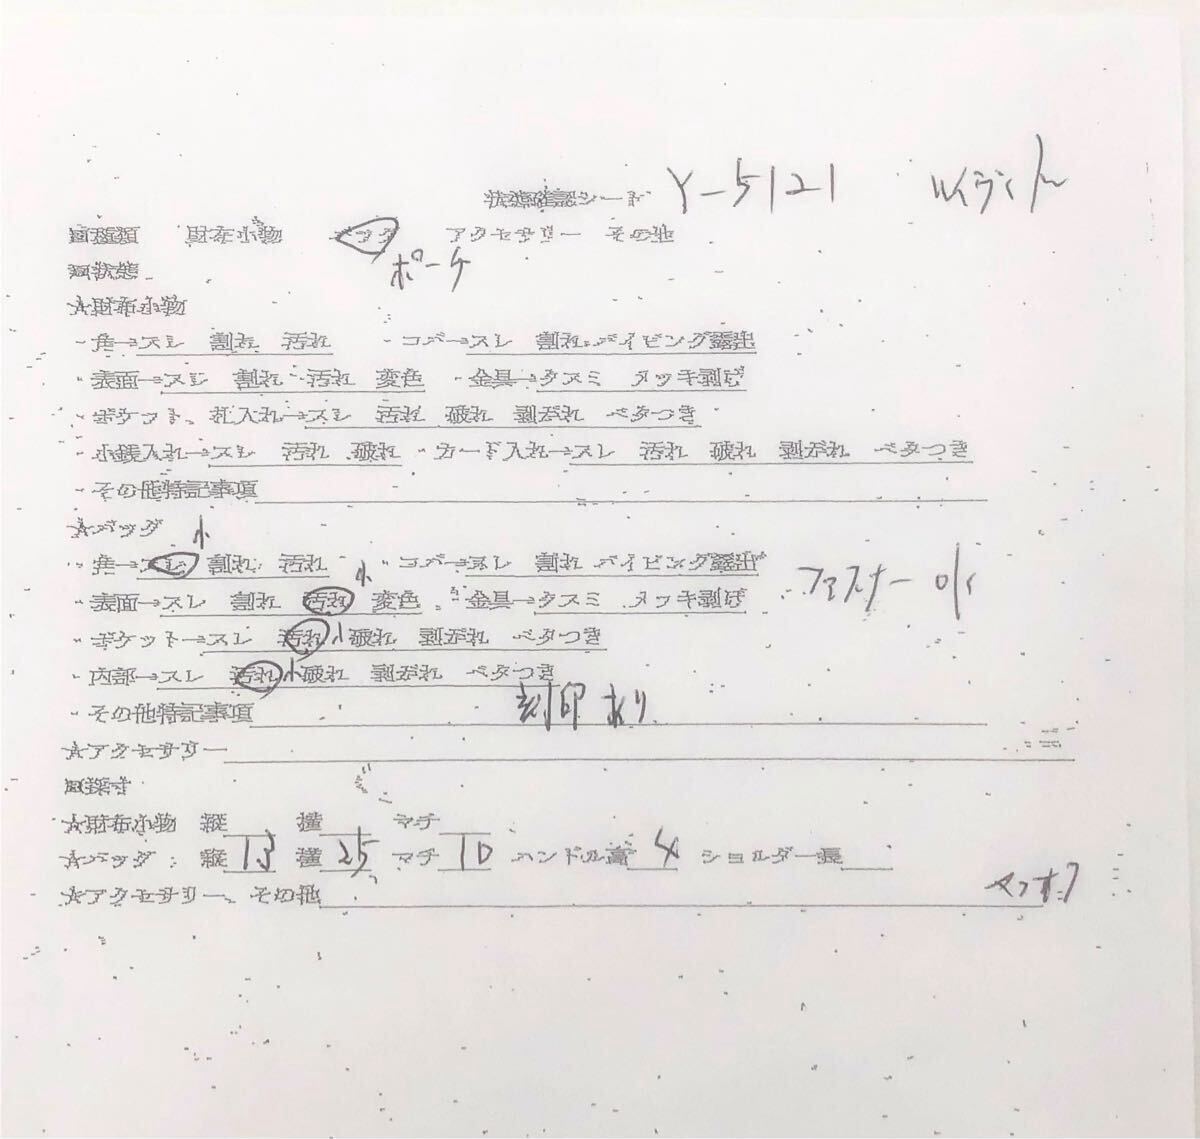 状態確認シード Y-5121 ルイヴィトン
□種類 財布小物 バッグ アクセサリー その他
ポーチ
□状態
★財布小物
・角→スレ 割れ 汚れ ・コバ→スレ 割れ パイピング露出
・表面→スレ 割れ 汚れ 変色 ・金具→クスミ メッキ剥げ
・ポケット、札入れ→スレ 汚れ 破れ 剥がれ ベタつき
・小銭入れ→スレ 汚れ 破れ ・カード入れ→スレ 汚れ 破れ 剥がれ ベタつき
・その他特記事項
★バッグ 小
・角→スレ 割れ 汚れ ・コバ→スレ 割れ パイピング露出
小
・表面→スレ 割れ 汚れ 変色 ・金具→クスミ メッキ剥げ ファスナー ok
・ポケット→スレ 汚れ 小 破れ 剥がれ ベタつき
・内部→スレ 汚れ 小 破れ 剥がれ ベタつき
・その他特記事項 刻印あり
★アクセサリー
□採寸
★財布小物 縦 横 マチ
★バッグ:縦 13 横 25 マチ 10 ハンドル高 4 ショルダー長
★アクセサリー、その他